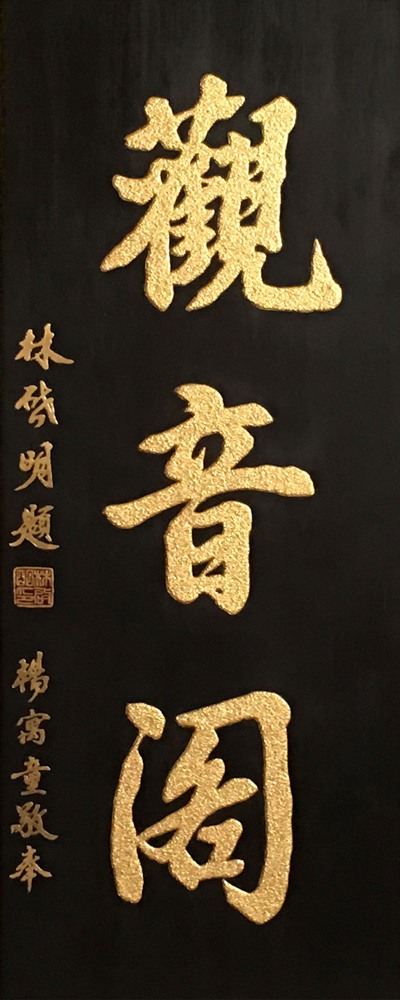 觀音阁
林啓明題
楊寓童敬奉